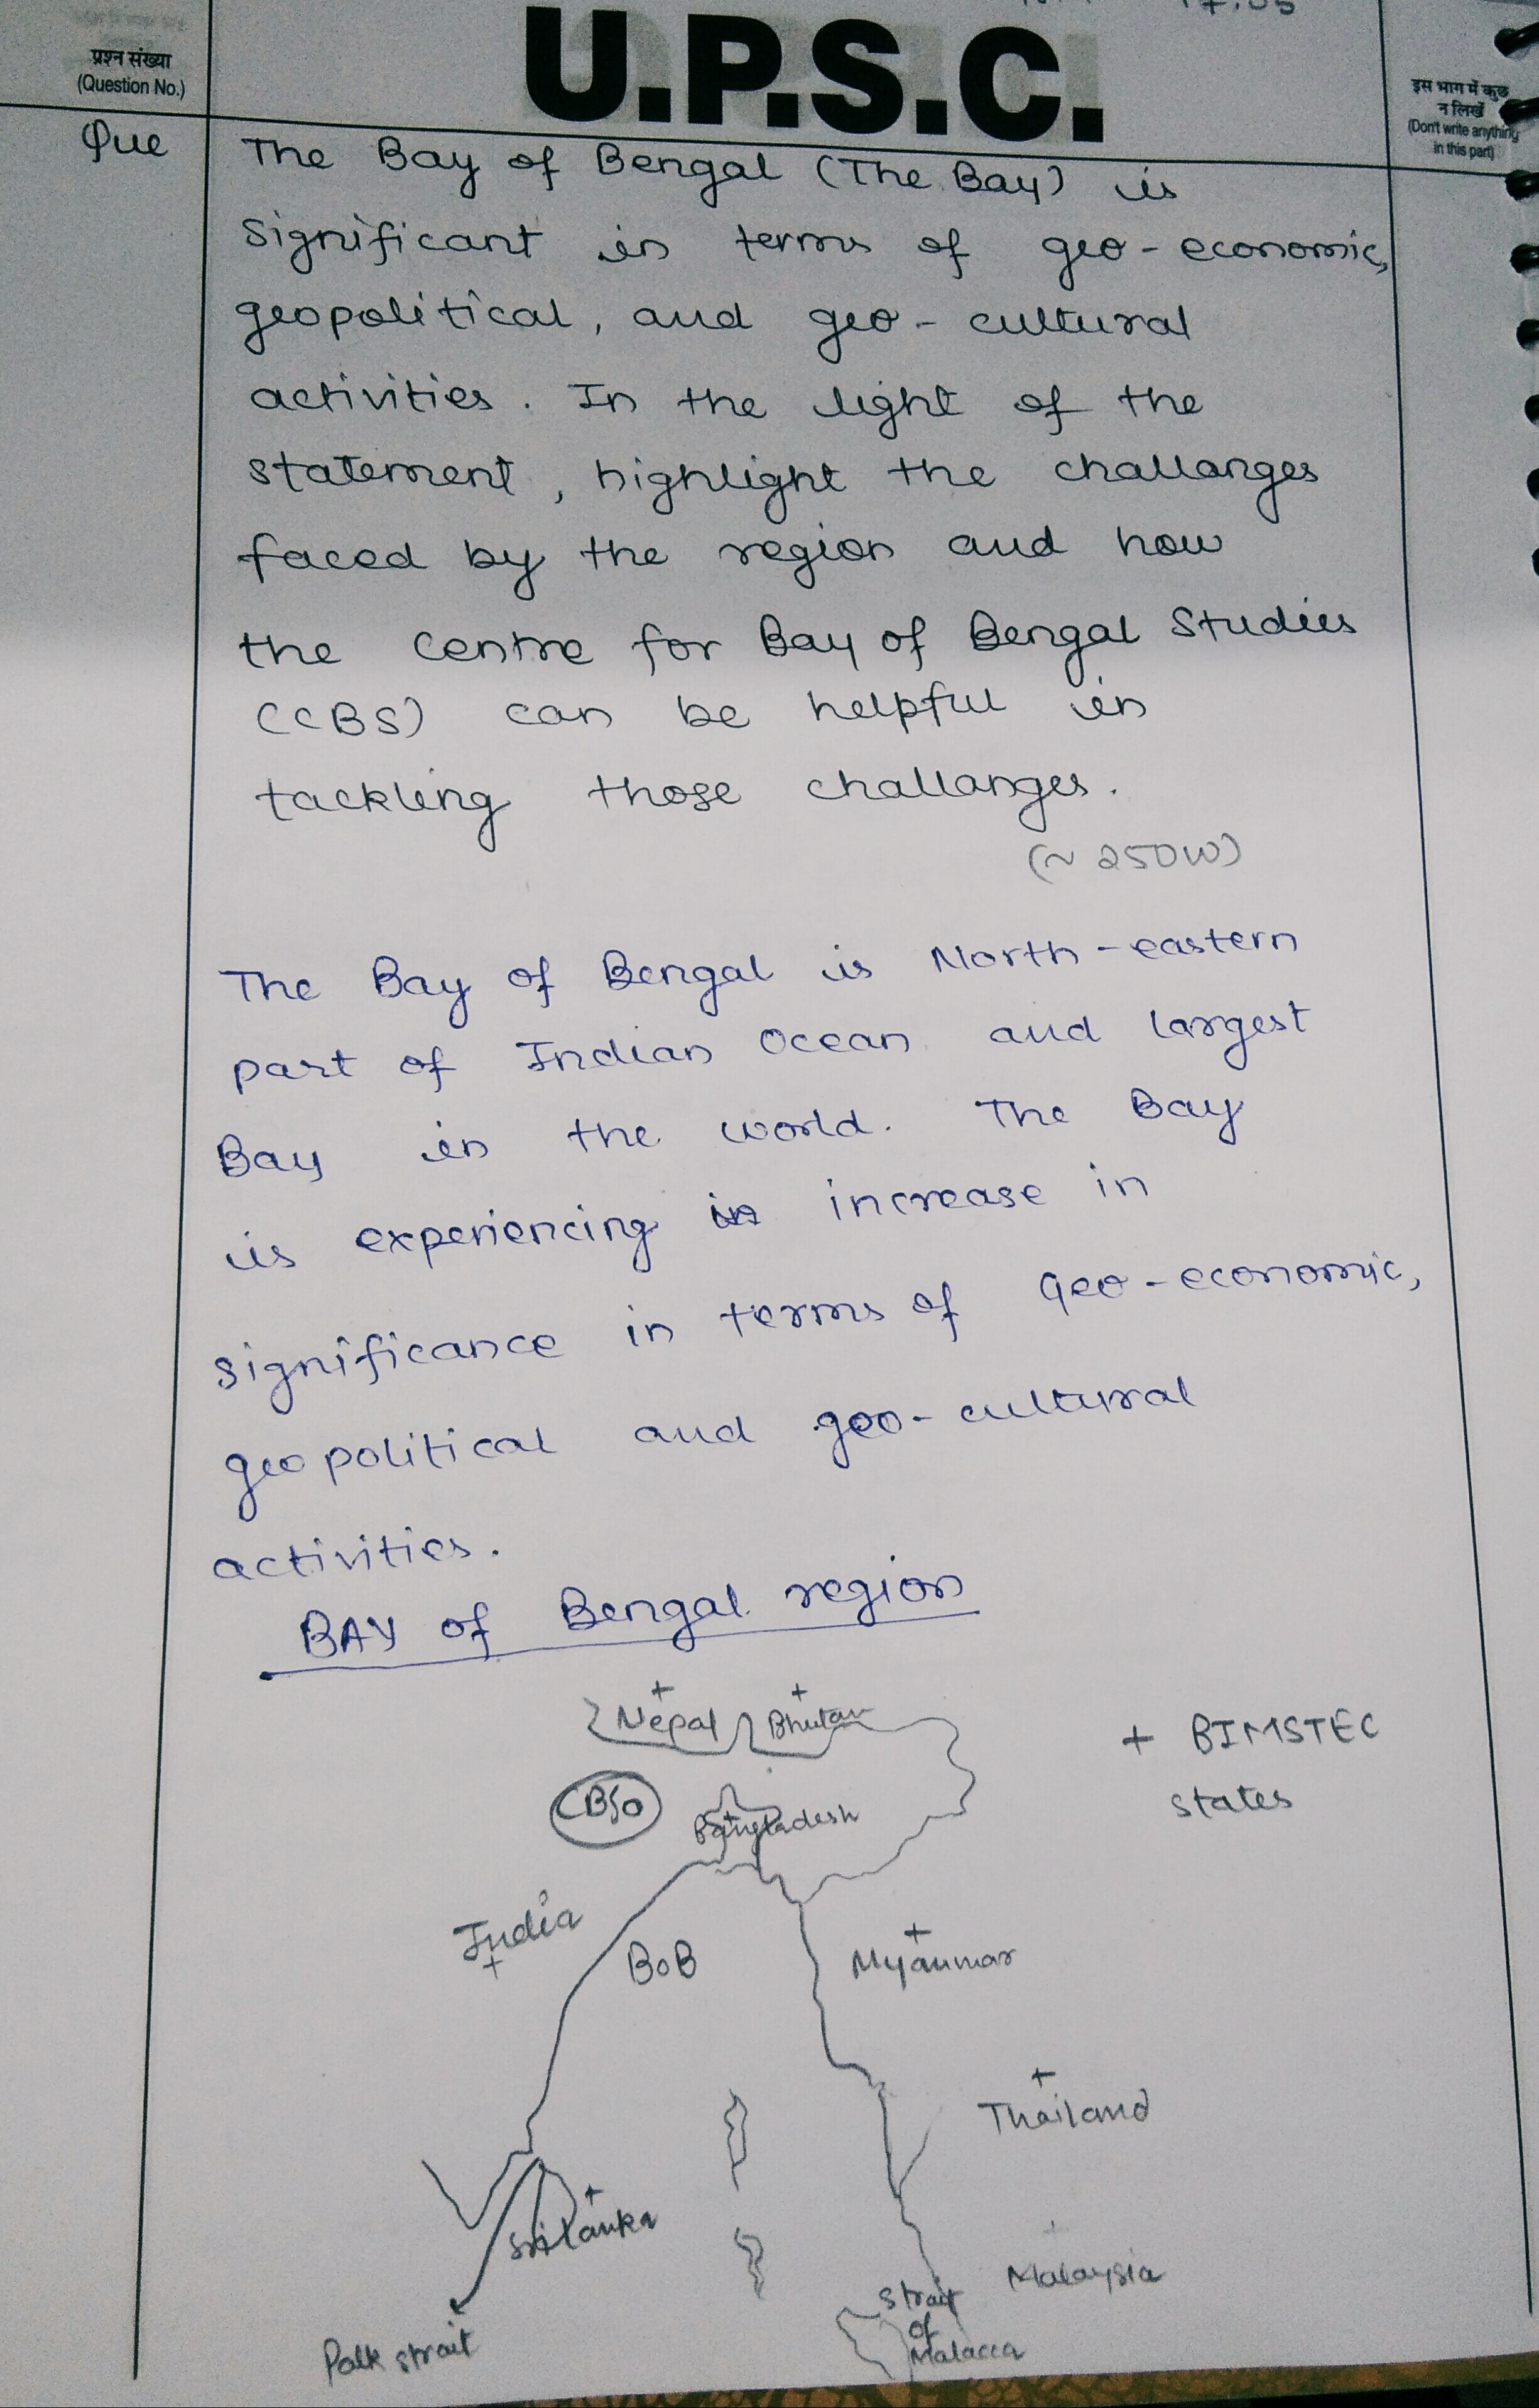 U.P.S.C.
प्रश्न संख्या
(Question No.)
इस भाग में कुछ
न लिखें
(Don't write anything
in this part)
Que
The Bay of Bengal (The Bay) is
significant in terms of geo-economic,
geopolitical, and geo-cultural
activities. In the light of the
statement, highlight the challanges
faced by the region and how
the Centre for Bay of Bengal Studies
(CBS) can be helpful in
tackling those challanges.
(~ 250W)
The Bay of Bengal is North-eastern
part of Indian Ocean and largest
Bay in the world. The Bay
is experiencing increase in
significance in terms of Geo-economic,
geopolitical and geo-cultural
activities.
BAY of Bengal region
+ +
Nepal Bhutan
+ BIMSTEC
states
Bangladesh
India
+
BoB
+
Myanmar
+
Thailand
+
Sri Lanka
Malaysia
Strait
of
Malacca
Palk strait